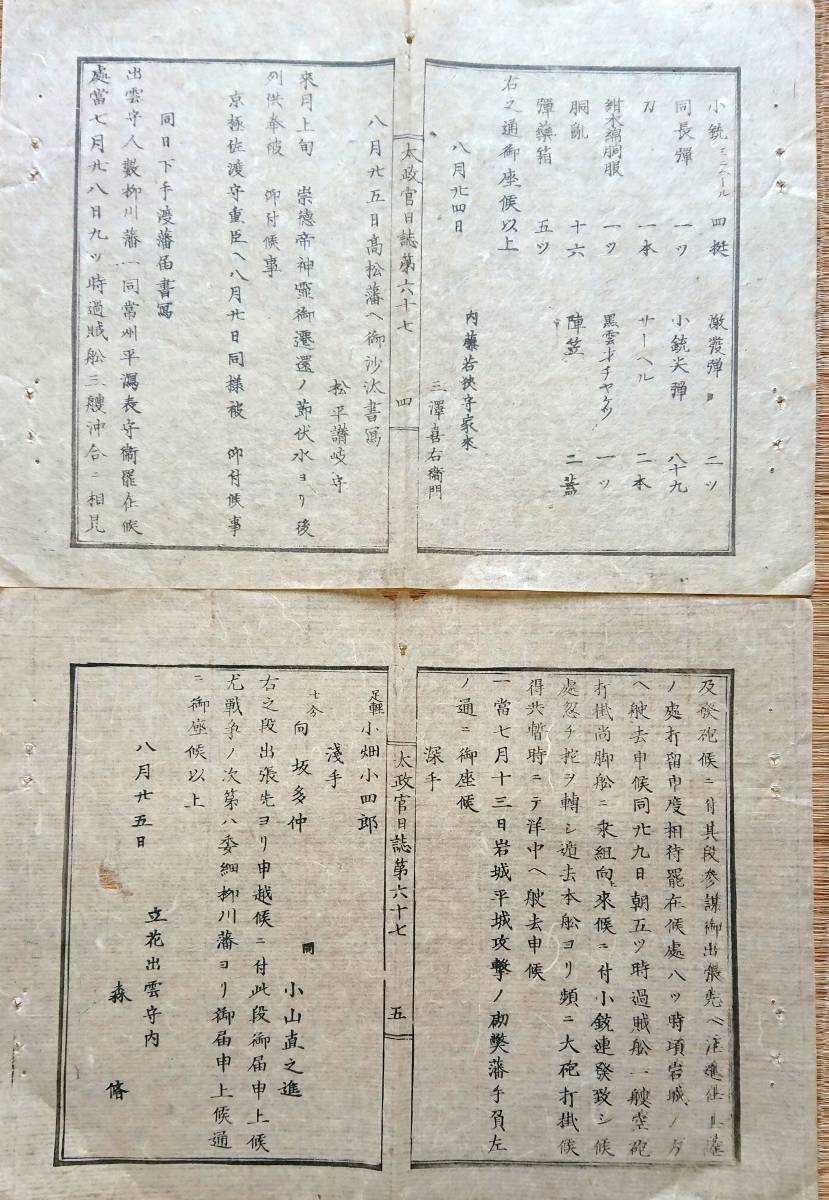 小銃 ミニヘール 四挺 激發彈 二ツ
同長彈 一ツ 小銃尖彈 八十九
刀 一本 サーヘル 二本
紺木綿胴服 一ツ 一ツ
胴亂 十六 陣笠 二蓋
彈藥箱 五ツ
右之通御座候以上
八月廿四日
内藤若狹守家来
三澤喜右衞門
太政官日誌第六十七 四
八月廿五日高松藩ヘ御沙汰書寫
松平讃岐守
來月上旬 崇德帝神霊御遷還ノ節伏水ヨリ後
列供奉被 仰付候事
京極佐渡守重臣ヘ八月廿日同様被 仰付候事
同日下手渡藩届書寫
出雲守人數柳川藩一同常州平潟表守衞罷在候
處當七月廿八日九ツ時過賊舩三艘沖合ニ相見
及發砲候ニ付其段參謀御出張先ヘ注進仕
ノ處打留申度相待罷在候處八ツ時頃岩城ノ方
ヘ舩去申候同廿九日朝五ツ時過賊舩一艘空砲
打掛尚脚舩ニ乘組向來候ニ付小銃連發致シ候
處忽チ柁ヲ轉シ遁去本舩ヨリ頻ニ大砲打掛候
得共暫時ニテ洋中ヘ舩去申候
一當七月十三日岩城平城攻擊ノ砌弊藩手負左
ノ通ニ御座候
深手
太政官日誌第六十七 五
足輕 小畑小四郎
淺手
七分 向坂多仲 同 小山直之進
右之段出張先ヨリ申越候ニ付此段御届申上候
尤戰爭ノ次第ハ委細柳川藩ヨリ御届申上候通
ニ御座候以上
八月廿五日
立花出雲守内
森脩